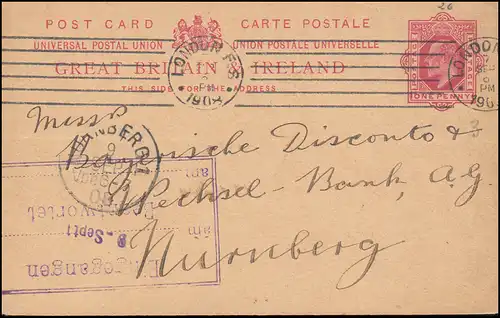 26
POST CARD CARTE POSTALE
UNIVERSAL POSTAL UNION UNION POSTALE UNIVERSELLE
GREAT BRITAIN & IRELAND
THIS SIDE FOR THE ADDRESS
ONE PENNY
LONDON F.S.
PM
1908
LONDON
PM
190
3
Messrs
Bayerische Disconto &
Wechsel-Bank, A.G.
Nürnberg
NÜRNBERG 1
9
08
Eingegangen
am 8-Sept
beantwortet
am